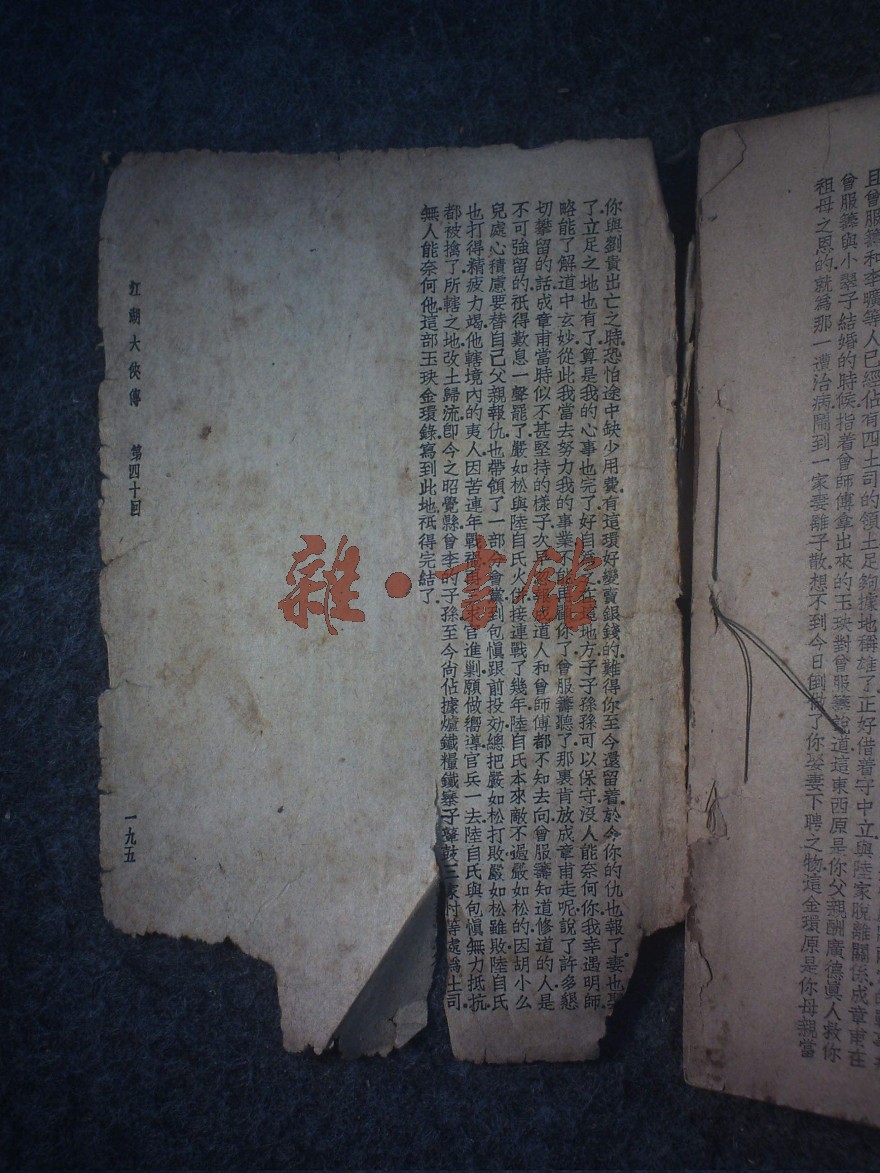 且曾服籌和李曠等人已經佔有四土司的領土足夠據地稱雄了正好借着守中立與陸家脫離關係成章甫在
曾服籌與小翠子結婚的時候指着曾師傅拿出來的玉玦對曾服籌說道這東西原是你父親酬廣德眞人救你
祖母之恩的就爲那一遭治病鬧到一家妻離子散想不到今日倒做了你娶妻下聘之物這金環原是你母親當
你與劉貴出亡之時恐怕途中缺少用費有這環好變賣銀錢的難得你至今還留着於今你的仇也報了妻也
了立足之地也有了算是我的心事也完了好自爲之在這地方子子孫孫可以保守沒人能奈何你我幸遇明師
略能了解道中玄妙從此我當去努力我的事業不能再顧你了曾服籌聽了那裏肯放成章甫走呢說了許多懇
切攀留的話成章甫當時似不甚堅持的樣子次早成道人和曾師傅都不知去向曾服籌知道修道的人是
不可強留的祇得歎息一聲罷了嚴如松與陸自氏火併接連戰了幾年陸自氏本來敵不過嚴如松的因胡小么
兒處心積慮要替自己父親報仇也帶領了一部會黨到句愼跟前投効總把嚴如松打敗嚴如松雖敗陸自氏
也打得精疲力竭他轄境內的夷人因苦連年戰禍求官進剿願做嚮導官兵一去陸自氏與包愼無力抵抗
都被擒了所轄之地改土歸流卽今之昭覺縣曾李的子孫至今尚佔據爐鐵糧鐵寨子鼕鼓三家村等處爲土司
無人能奈何他這部玉玦金環錄寫到此地祇得完結了
江湖大俠傳 第四十回
一九五
雜·書館